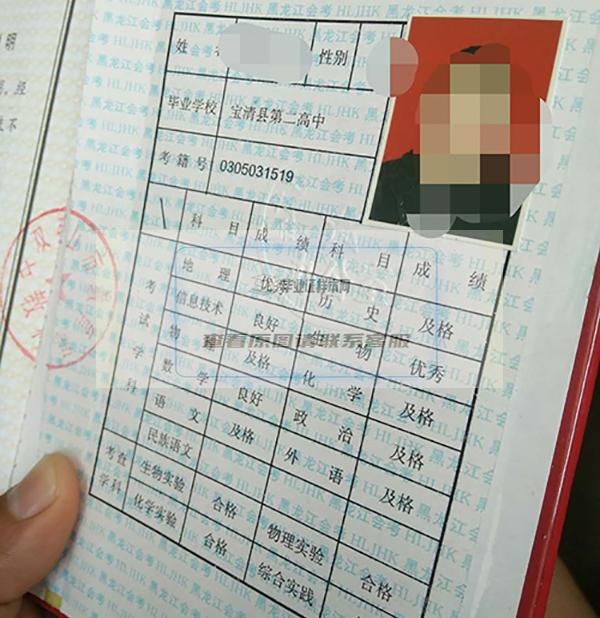 明
经
不
姓 性别
毕业学校 宝清县第二高中
考籍号 0305031519
科目 成绩 科目 成绩
考试学科
地理 优秀 历史 及格
信息技术 良好 生物 优秀
物 及格 化学 及格
数学 良好 政治 及格
语文 及格 外语 及格
民族语文
考查学科
生物实验 合格 物理实验 合格
化学实验 合格 综合实践
查看原图请联系客服
黑龙江会考 HLJHK